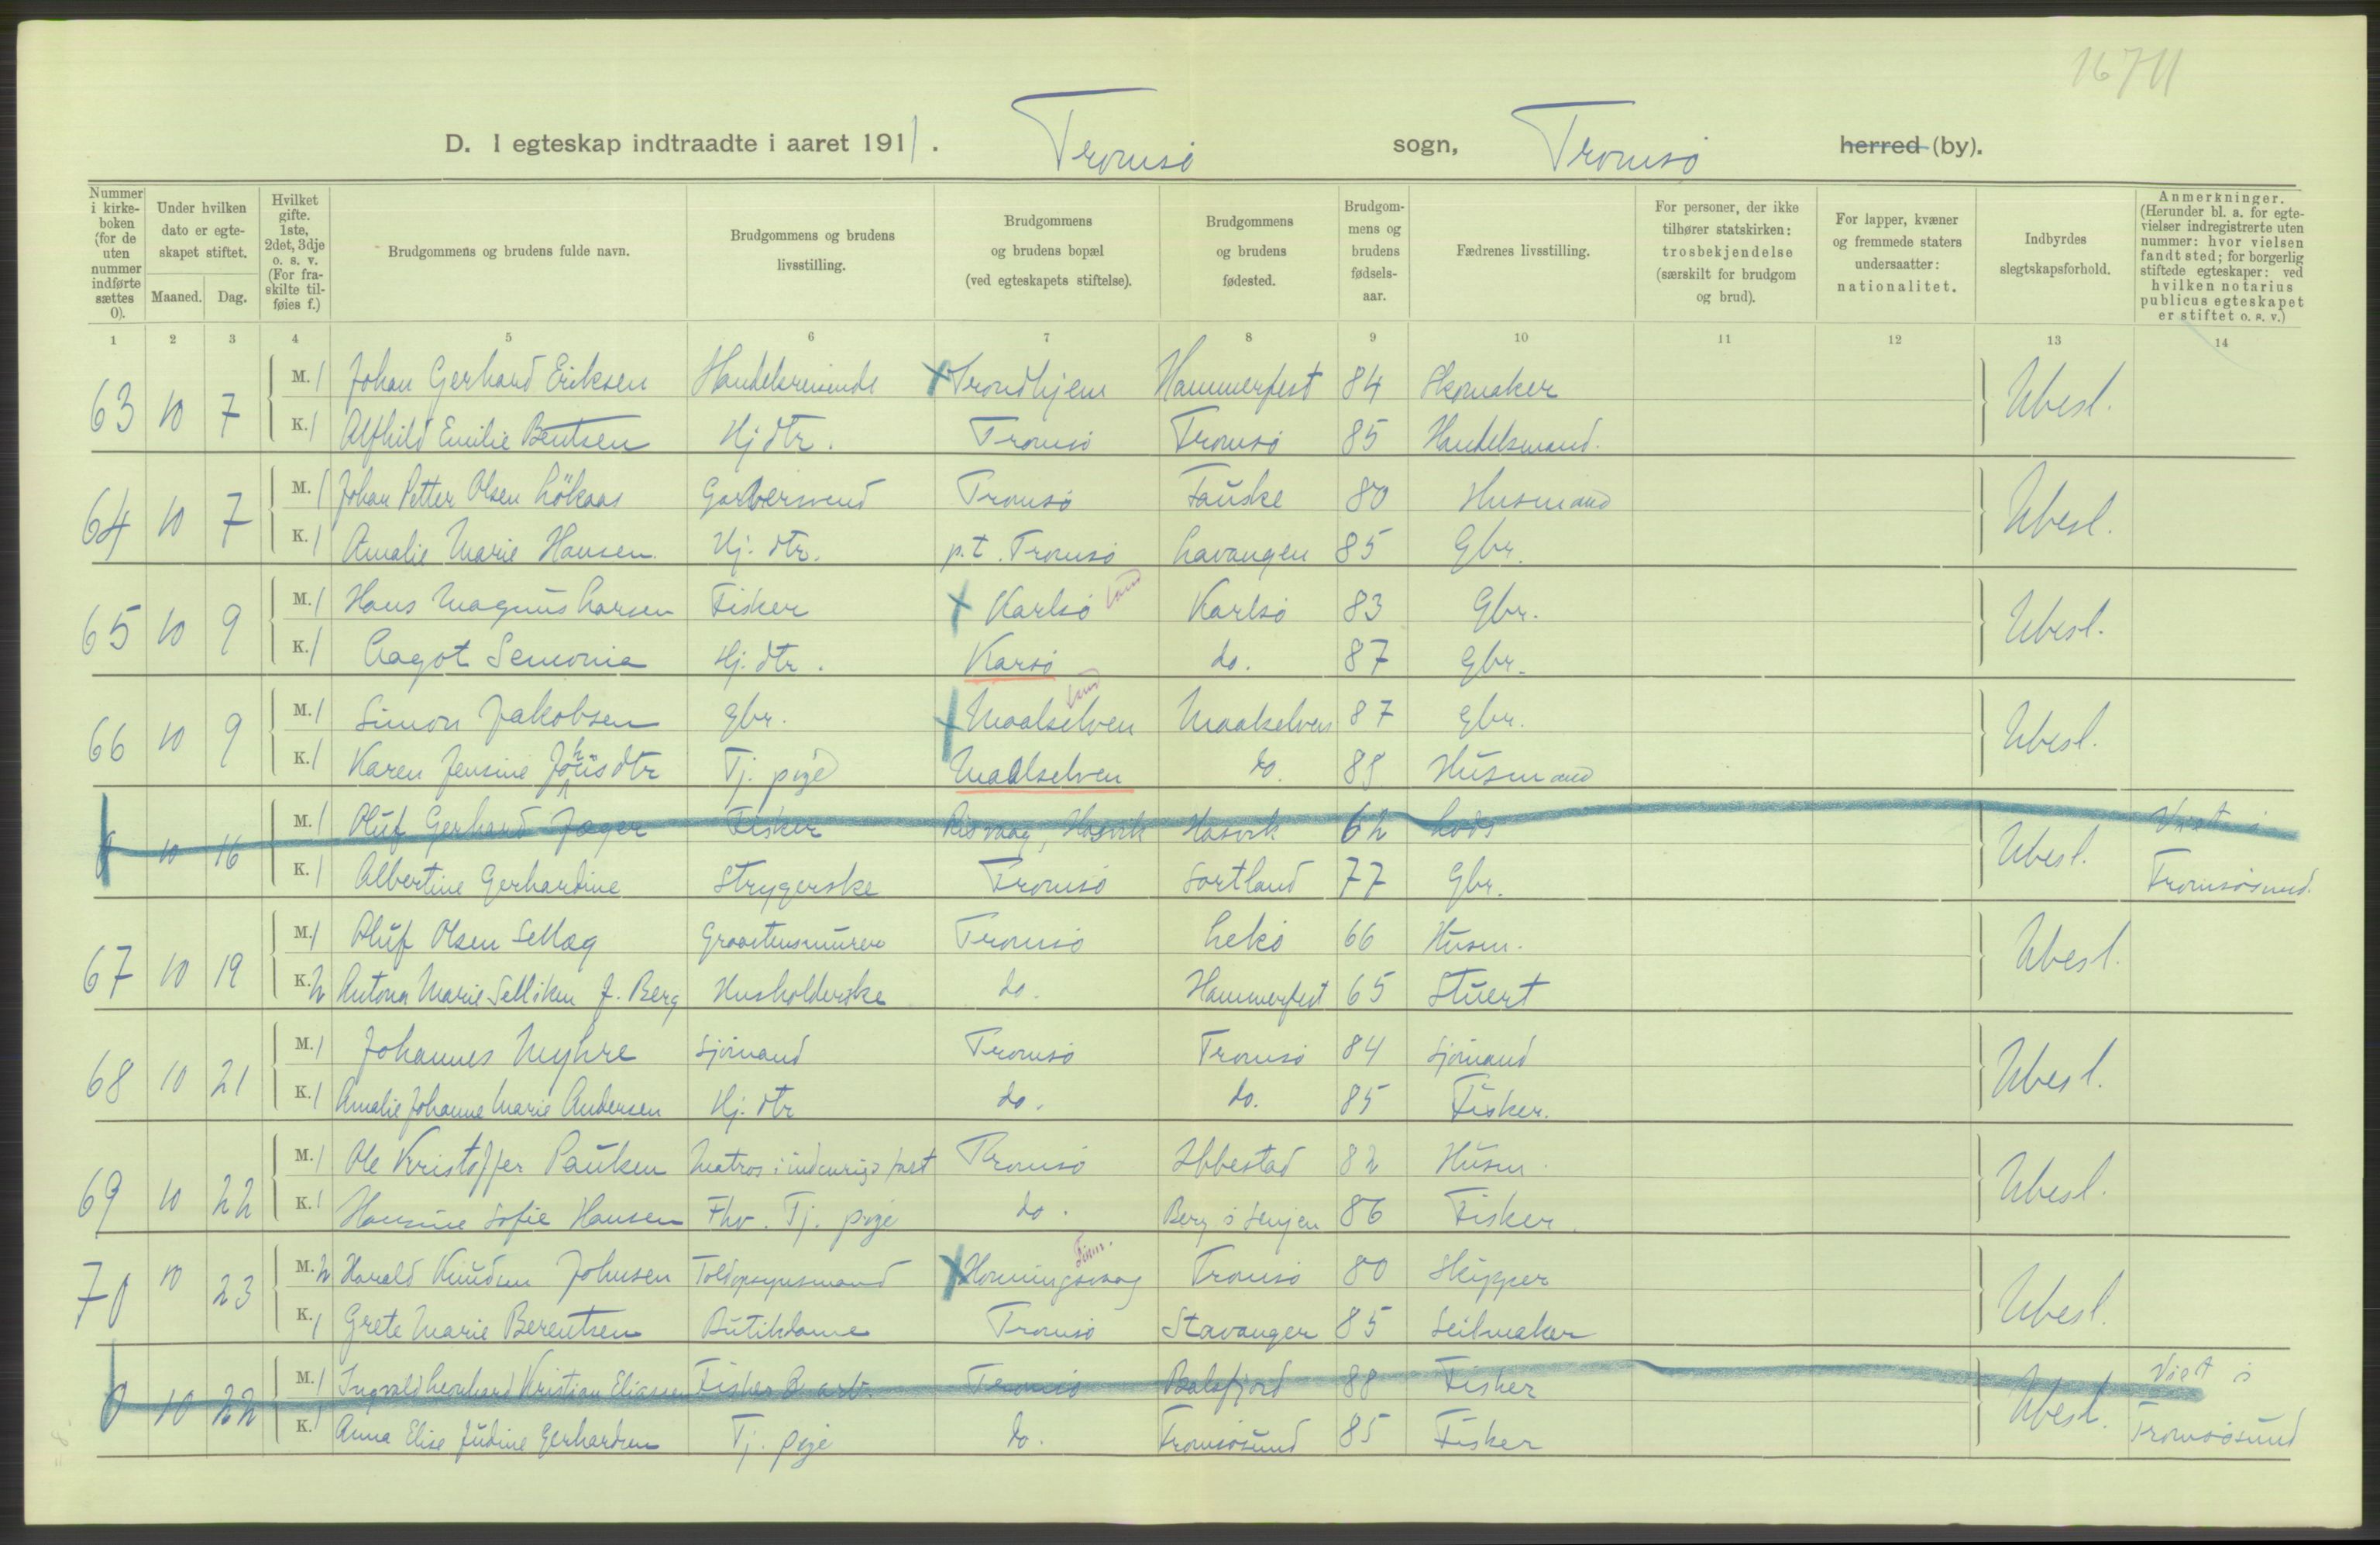 1671
D. I egteskap indtraadte i aaret 1911. Tromsø sogn, Tromsø herred (by).
Nummer i kirkeboken (for de uten nummer indførte sættes 0).
Under hvilken dato er egteskapet stiftet.
Maaned. Dag.
Hvilket gifte. 1ste, 2det, 3dje o. s. v. (For fraskilte tilføies f.)
Brudgommens og brudens fulde navn.
Brudgommens og brudens livsstilling.
Brudgommens og brudens bopæl (ved egteskapets stiftelse).
Brudgommens og brudens fødested.
Brudgommens og brudens fødselsaar.
Fædrenes livsstilling.
For personer, der ikke tilhører statskirken: trosbekjendelse (særskilt for brudgom og brud).
For lapper, kvæner og fremmede staters undersaatter: nationalitet.
Indbyrdes slegtskapsforhold.
Anmerkninger. (Herunder bl. a. for egtevielser indregistrerte uten nummer: hvor vielsen fandt sted; for borgerlig stiftede egteskaper: ved hvilken notarius publicus egteskapet er stiftet o. s. v.)
1 2 3 4 5 6 7 8 9 10 11 12 13 14
63 10 7 M. 1 Johan Gerhard Eriksen Handelsreisende Trondhjem Hammerfest 84 Skomaker Ubesl.
K. 1 Alfhild Emilie Bentsen Hj dtr. Tromsø Tromsø 85 Handelsmand.
64 10 7 M. 1 Johan Petter Olsen Lökaas Garversvend Tromsø Fauske 80 Husmand Ubesl.
K. 1 Amalie Marie Hansen. Hj. dtr. p.t. Tromsø Lavangen 85 Gbr.
65 10 9 M. 1 Hans Magnus Larsen Fisker Karlsø Karlsø 83 Gbr. Ubesl.
K. 1 Aagot Semonia Hj. dtr. Karsø do. 87 Gbr.
66 10 9 M. 1 Simon Jakobsen gbr. Maalselven Maalselven 87 gbr. Ubesl.
K. 1 Karen Jensine Johnsdtr Tj. pige Maalselven do. 88 Husmand
0 10 16 M. 1 Oluf Gerhard Jæger Fisker Risvaag, Hasvik Hasvik 62 Lods Ubesl. Viet i
K. 1 Albertine Gerhardine Strygerske Tromsø Sortland 77 Gbr. Tromsøsund.
67 10 19 M. 1 Oluf Olsen Sellæg Graastensmurer Tromsø Lekø 66 Husm. Ubesl.
K. 2 Antona Marie Selliken f. Berg Husholderske do. Hammerfest 65 Stuert
68 10 21 M. 1 Johannes Myhre Sjømand Tromsø Tromsø 84 Sjømand Ubesl.
K. 1 Amalie Johanne Marie Andersen Hj. dtr do. do. 85 Fisker.
69 10 22 M. 1 Ole Kristoffer Paulsen Matros i indenrigs fart Tromsø Ibbestad 82 Husm. Ubesl.
K. 1 Hansine Sofie Hansen Fhv. Tj. pige do. Berg i Senjen 86 Fisker.
70 10 23 M. 2 Harald Knudsen Johnsen Toldopsynsmand Honningsvaag Finm. Tromsø 80 Skipper Ubesl.
K. 1 Grete Marie Berentsen Butikdame Tromsø Stavanger 85 Seilmaker
0 10 22 M. 1 Ingvald Leonhard Kristian Eliassen Fisker & arb. Tromsø Balsfjord 88 Fisker Ubesl. Viet i
K. 1 Anna Elise Judine Gerhardsen Tj. pige do. Tromsøsund 85 Fisker Tromsøsund